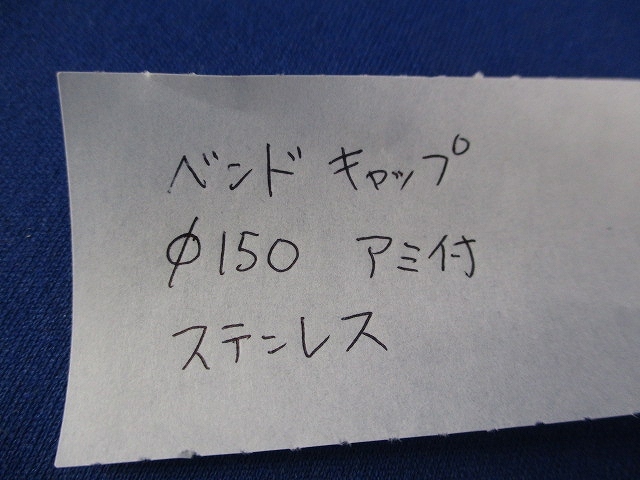 ベンド キャップ
φ150 アミ付
ステンレス